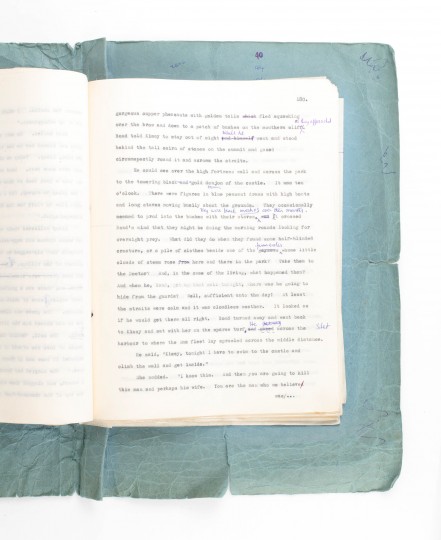 40
151.
gorgeous copper pheasants with golden tails fled squawking
over the edge and down to a patch of bushes on the southern cliff.
Bond told Kissy to stay out of sight went and stood
behind the tall cairn of stones on the summit and gazed
circumspectly round it and across the straits.
He could see over the high fortress wall and across the park
to the towering black-and-gold donjon of the castle. It was ten
o'clock. There were figures in blue peasant dress with high boots
and long staves moving busily about the grounds. They occasionally
seemed to prod into the bushes with their staves. It crossed
Bond's mind that they might be doing the morning rounds looking for
overnight prey. What did they do when they found some half-blinded
creature, or a pile of clothes beside one of the fumaroles whose little
clouds of steam rose here and there in the park? Take them to
the Doctor? And, in the case of the living, what happened then?
And when he, Bond, got up that wall tonight, where was he going to
hide from the guards? Well, sufficient unto the day! At least
the straits were calm and it was cloudless weather. It looked as
if he would get there all right. Bond turned away and went back
to Kissy and sat with her on the sparse turf, and gazed across the
harbour to where the Ama fleet lay sprawled across the middle distance.
He said, "Kissy, tonight I have to swim to the castle and
climb the wall and get inside."
She nodded. "I know this. And then you are going to kill
this man and perhaps his wife. You are the man who we believe